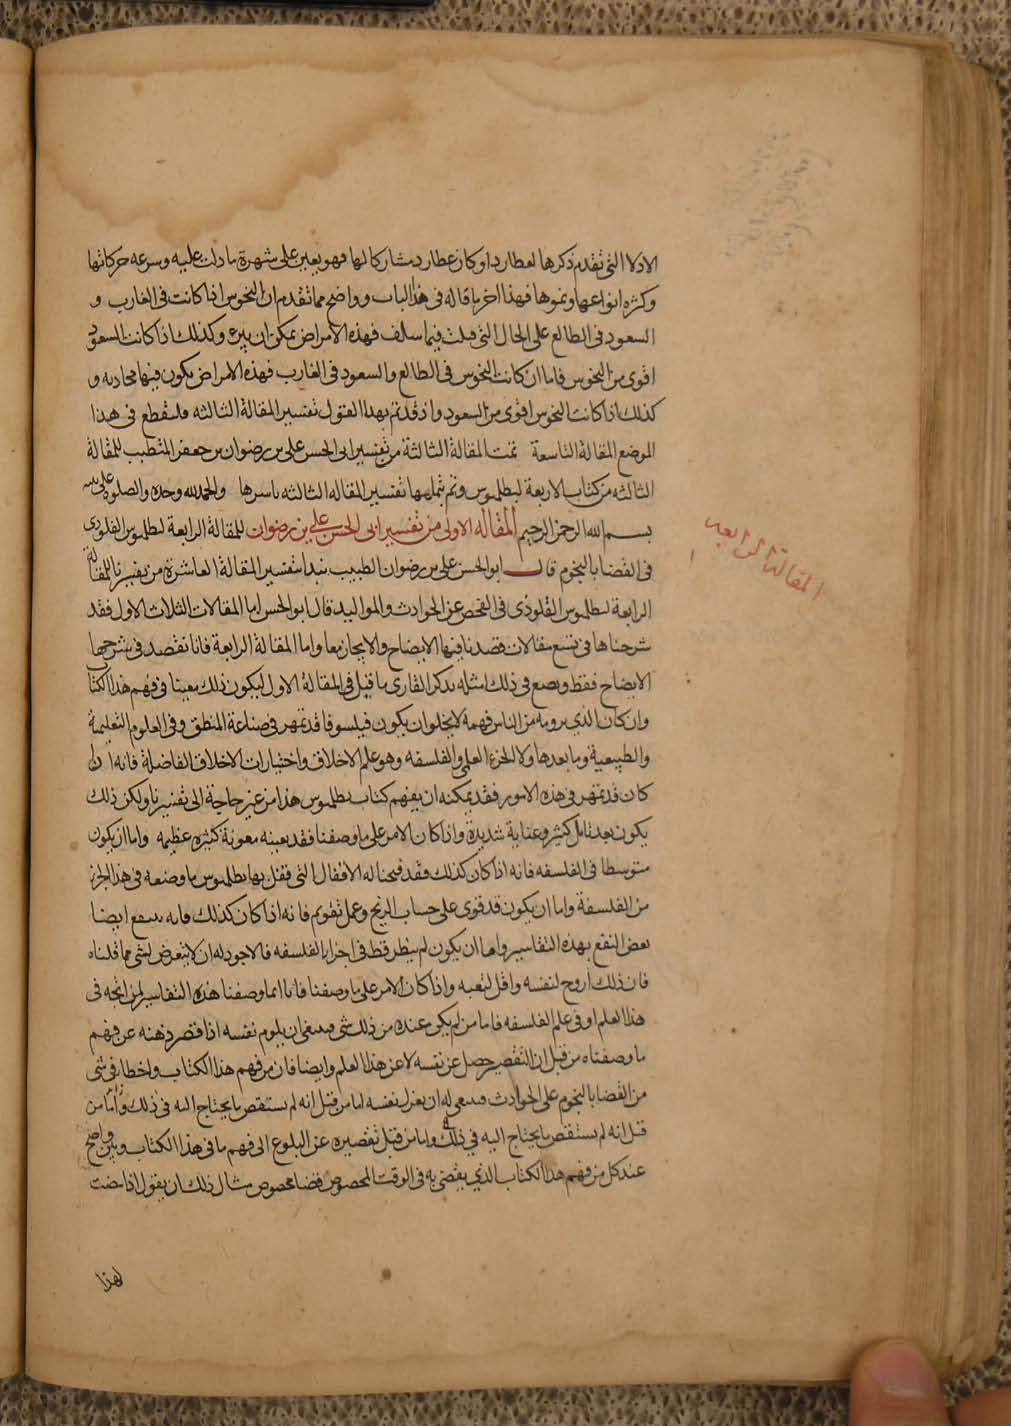 الادلا التى تقدم ذكرها لعطارد او كان عطارد مشاركا لها فهو يعين على شهرة ما دلت عليه وسرعه حركاتها
وكثره انواعها ونموها فهذا اخر ما قاله فى هذا الباب وواضح مما تقدم ان النحوس اذا كانت فى الغارب و
السعود فى الطالع على الحال التى قيلت فيما سلف فهذه الامراض يمكن ان تبرء وكذلك اذا كانت السعود
اقوى من النحوس فاما ان كانت النحوس فى الطالع والسعود فى الغارب فهذه الامراض يكون فيها و
كذلك اذا كانت النحوس اقوى من السعود واذ قد تم بهذا القول تفسير المقالة الثالثه فلنقطع فى هذا
الموضع المقالة التاسعة تمت المقالة الثالثة من تفسير ابى الحسن على بن رضوان بن جعفر المتطبب للمقالة
الثالثه من كتاب الاربعة لبطلميوس وتم بتمامها تفسير المقاله الثالثه باسرها والحمد لله وحده والصلوة على نبيه
بسم الله الرحمن الرحيم المقاله الاولى من تفسير ابى الحسن على بن رضوان للمقالة الرابعة لبطلميوس القلوذى
فى القضايا بالنجوم قال ابو الحسن على بن رضوان الطبيب نبدا بتفسير المقالة العاشرة من تفسيرنا للمقالة
الرابعة لبطلميوس القلوذى فى الفحص عن الحوادث والمواليد قال ابو الحسن اما المقالات الثلاث الاول فقد
شرحناها فى تسع مقالات قصدنا فيها الايضاح والايجاز معا واما المقالة الرابعة فانا نقصد فى شرحها
الايضاح فقط ونضع فى ذلك امثله تذكر القارى ما قيل فى المقالة الاول ليكون ذلك معينا فى فهم هذا الكتا
وان كان الذى يرومه من الناس فهمه لا يخلو ان يكون فيلسوفا قد تمهر فى صناعة المنطق وفى العلوم التعليمية
والطبيعية وما بعدها ولا الجزء العلمى والفلسفه وهو علم الاخلاق واختيارات الاخلاق الفاضلة فانه ان
كان قد تمهر فى هذه الامور فقد يمكنه ان يفهم كتاب بطلميوس هذا من غير حاجة الى تفسيرنا ولكن ذلك
يكون بعد تامل كثير وعناية شديدة واذا كان الامر على ما وصفنا فقد يعينه معونة كثيره عظيمه واما ان يكون
متوسطا فى الفلسفه فانه اذا كان كذلك فقد فتحنا له الاقفال التى قفل بها بطلميوس ما وضعه فى هذا الجزء
من الفلسفة واما ان يكون قد قوى على حساب الزيج وعمل تقويم فانه اذا كان كذلك فانه ينتفع ايضا
بعض النفع بهذه التفاسير واما ان يكون لم ينظر قط فى اجزاء الفلسفه فالاجود له ان لا يتعرض لشى مما قلناه
فان ذلك اروح لنفسه واقل لتعبه واذا كان الامر على ما وصفنا فانا انما وصفنا هذه التفاسير لمن اتجه فى
هذا العلم او فى علم الفلسفه فاما من لم يكن عنده من ذلك شى فينبغى ان يلوم نفسه اذا قصر ذهنه عن فهم
ما وصفناه من قبل ان التقصير حصل عن نفسه لا عن هذا العلم وايضا فان من فهم هذا الكتاب واخطاء فى شى
من القضايا بالنجوم على الحوادث فينبغى له ان يعزل نفسه اما من قبل انه لم يستقص ما يحتاج اليه فى ذلك واما من
قبل انه لم يستقص ما يحتاج اليه فى ذلك واما من قبل تقصيره عن البلوغ الى فهم ما فى هذا الكتاب وبين واضح
عند كل من فهم هذا الكتاب الذى يقضى به فى الوقت المخصوص قضا مخصوص مثال ذلك ان يقول اذا
لهذا
المقالة الرابعه